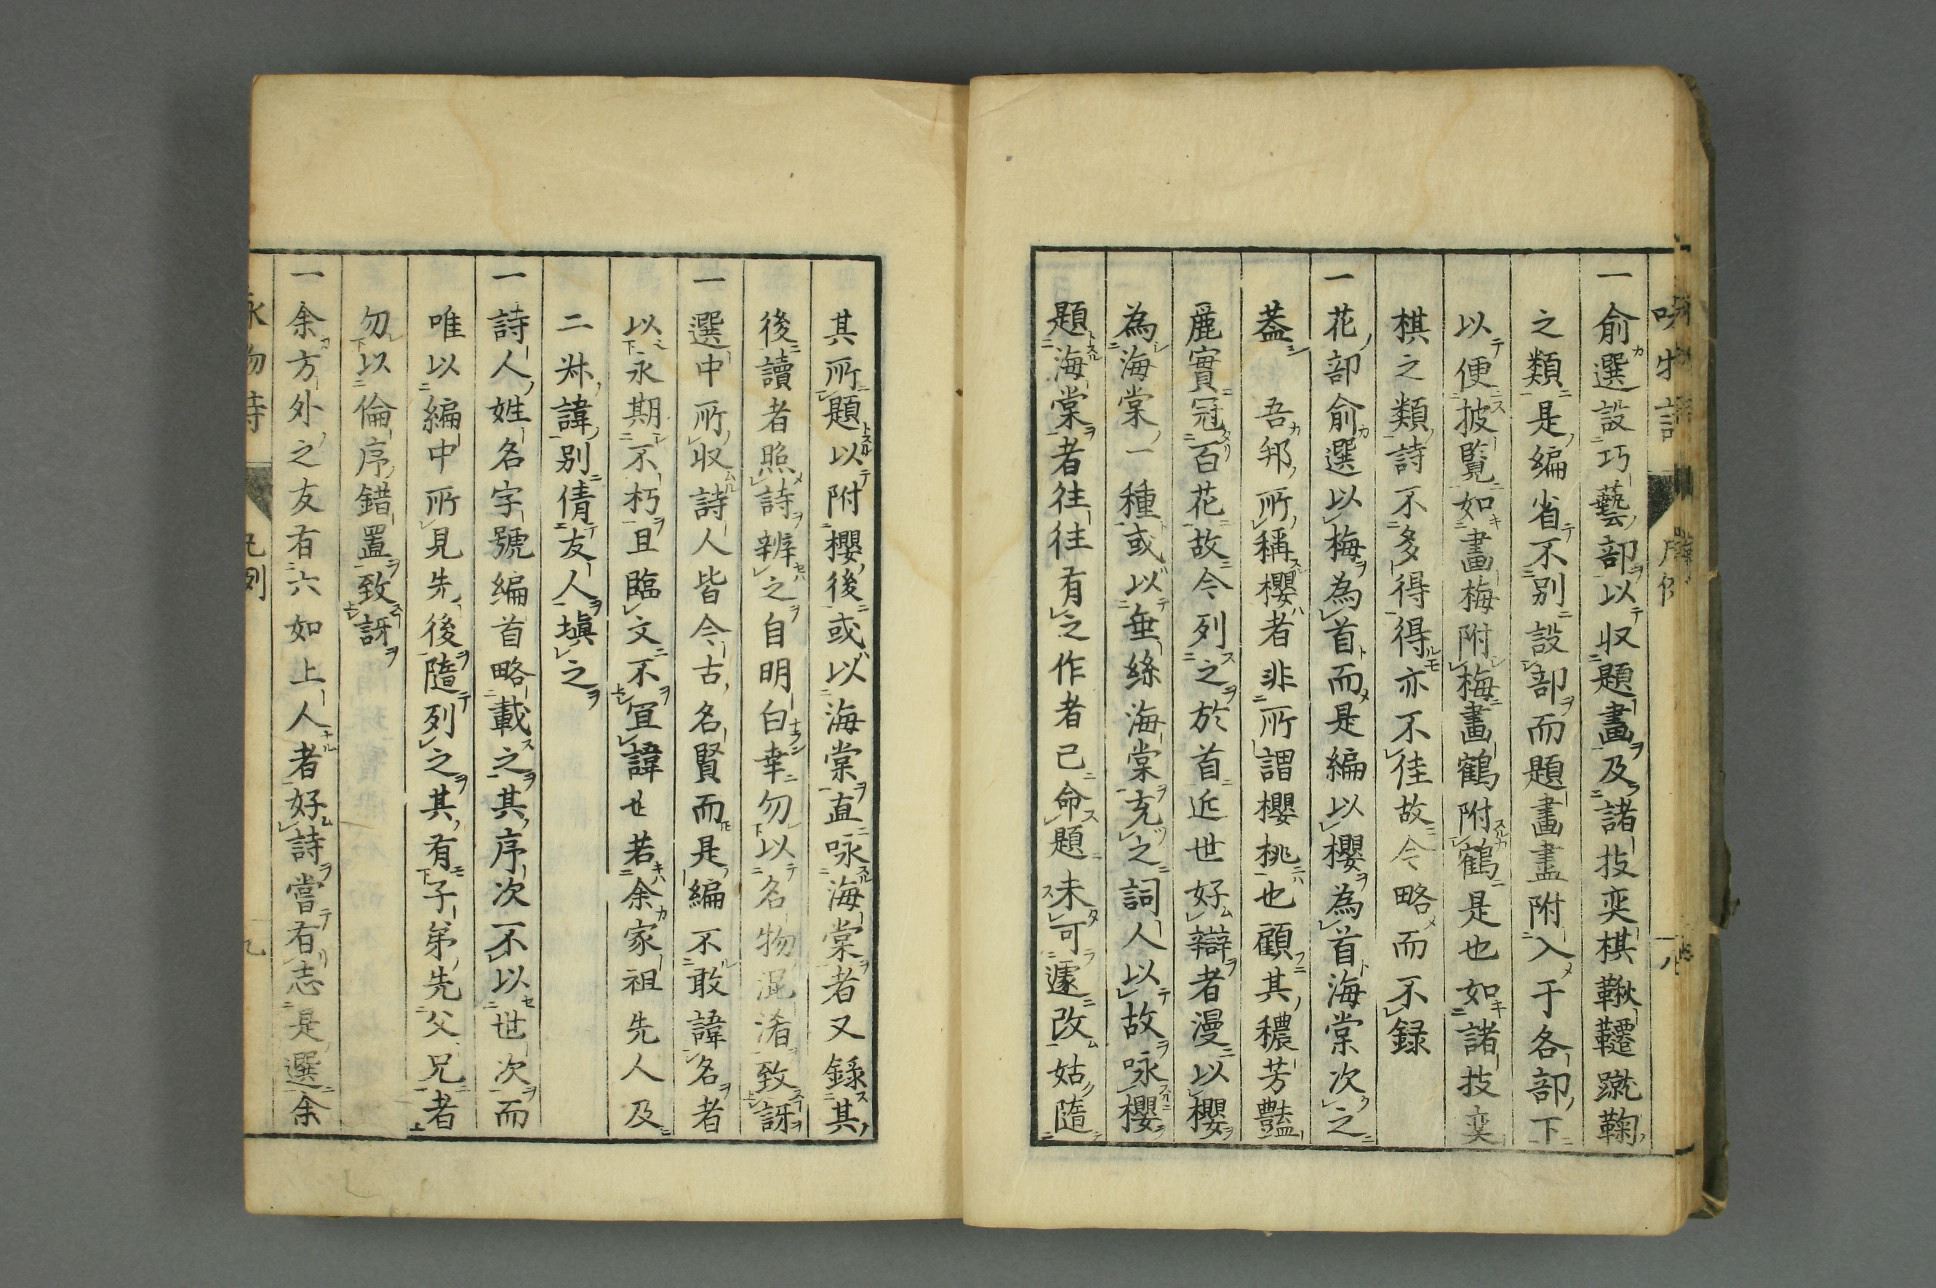 一俞選設巧藝部以收題畫及諸技奕棋鞦韆蹴鞠
之類是編省不別設部而題畫盡附入于各部下
以便披覽如畫梅附梅畫鶴附鶴是也如諸技奕
棋之類詩不多得得亦不佳故今略而不録
一花部俞選以梅為首而是編以櫻為首海棠次之
蓋吾邦所稱櫻者非所謂櫻桃也顧其穠芳豔
麗實冠百花故今列之於首近世好辯者漫以櫻
為海棠一種或以垂絲海棠充之詞人以故咏櫻
題海棠者往往有之作者已命題未可遽改姑隨
其所題以附櫻後或以海棠直咏海棠者又録其
後讀者照詩辨之自明白幸勿以名物混淆致訝
一選中所收詩人皆今古名賢而是編不敢諱名者
以永期不朽且臨文不宜諱也若余家祖先人及
二叔諱別倩友人塡之
一詩人姓名字號編首略載之其序次不以世次而
唯以編中所見先後隨列之其有子弟先父兄者
勿以倫序錯置致訝
一余方外之友有六如上人者好詩嘗有志是選余